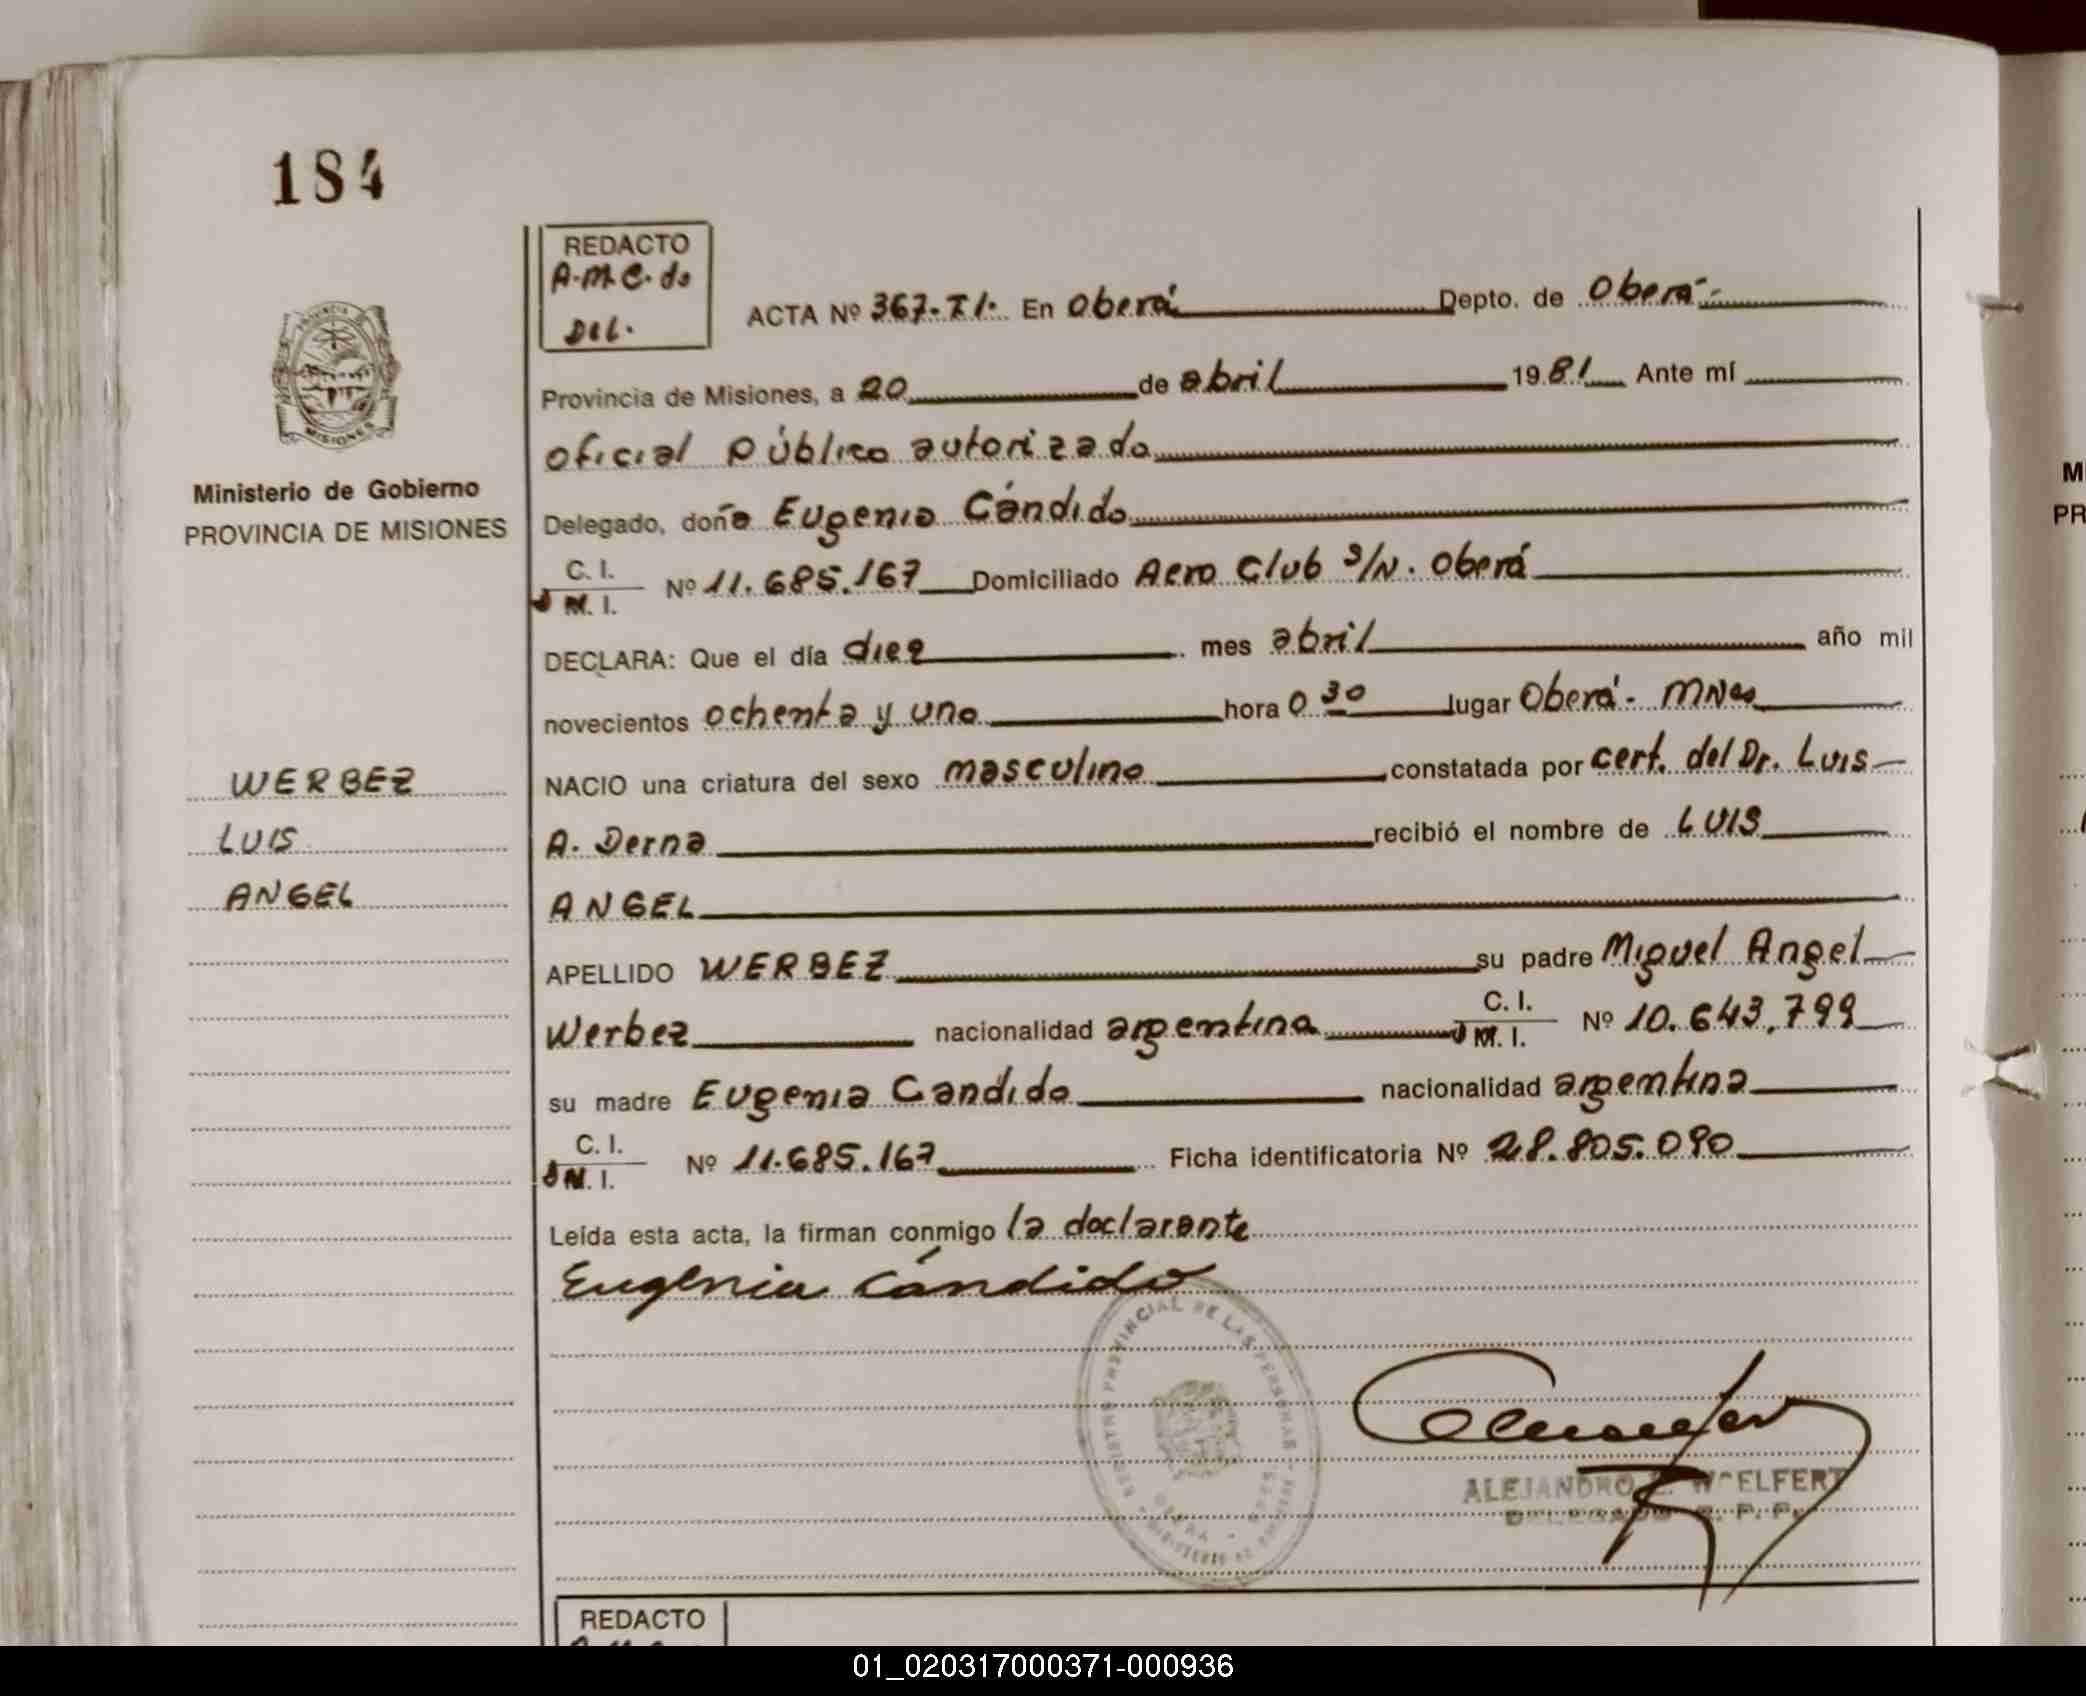 184
REDACTO
A.M.C. do
Del.
ACTA Nº 367-TI. En Oberá Depto. de Oberá
Provincia de Misiones, a 20 de abril 1981 Ante mí
PROVINCIA
MISIONES
oficial público autorizado
Ministerio de Gobierno
PROVINCIA DE MISIONES
Delegado, doña Eugenia Cándido
C. I.
M. I.
Nº 11.685.167 Domiciliado Aero Club s/N. Oberá
DECLARA: Que el día diez mes abril año mil
novecientos ochenta y uno hora 0 30 lugar Oberá - MNes
WERBEZ
NACIO una criatura del sexo masculino constatada por cert. del Dr. Luis
LUIS
A. Derna recibió el nombre de LUIS
ANGEL
ANGEL
APELLIDO WERBEZ su padre Miguel Angel
Werbez nacionalidad argentina C. I. M. I. Nº 10.643.799
su madre Eugenia Candido nacionalidad argentina
C. I.
M. I.
Nº 11.685.167 Ficha identificatoria Nº 28.805.090
Leída esta acta, la firman conmigo la declarante
Eugenia Cándido
PROVINCIAL DE LAS PERSONAS
ALEJANDRO
DELEGADO R. P. P.
REDACTO
M
PR
01_020317000371-000936